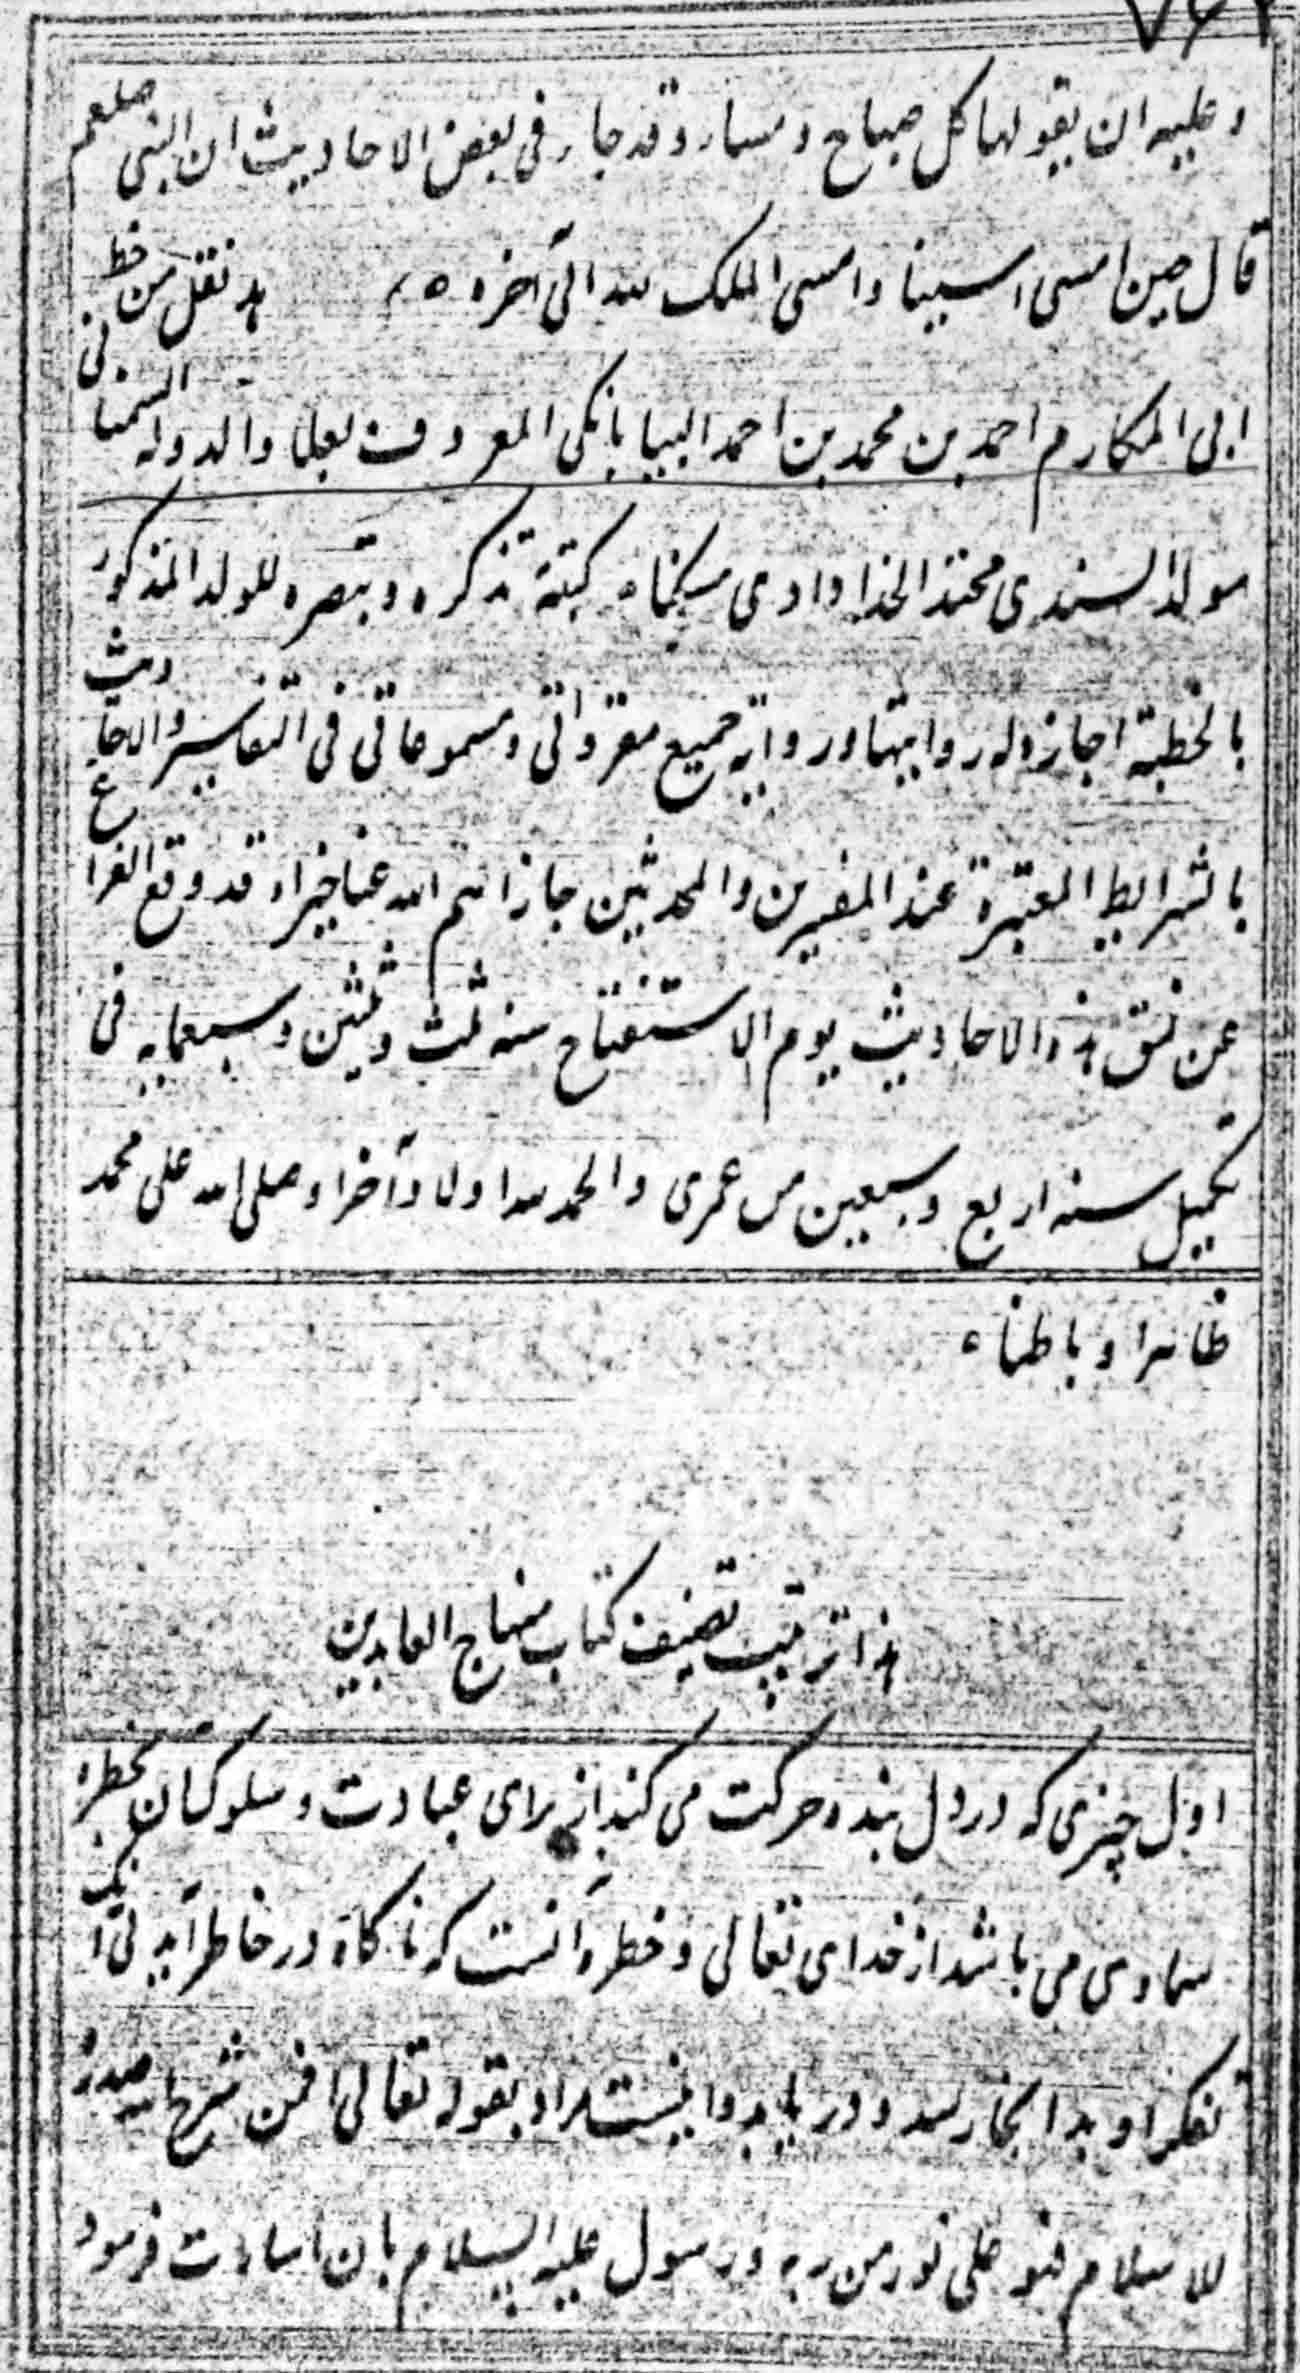 ۷۶۲
وعلیه ان یقولها کل صباح ومساء وقد جاء فی بعض الاحادیث ان النبی صلعم
قال حین امسی امسینا وامسی الملک لله الی آخره ۵ هذ نقل من خط
ابی المکارم احمد بن محمد بن احمد البیابانکی المعروف بعلاء الدوله السمنانی
مولدا السندی محتدا الخدادادی مسکنا کتبته تذکره وتبصره للولد المذکور
بالخطبة اجازة له روایتها وروایة جمیع مقرواتی ومسموعاتی فی التفاسیر والاحادیث
بالشرایط المعتبرة عند المفسرین والمحدثین جازاهم الله عنا خیرا وقد وقع الفراغ
عن نسق هذه الاحادیث یوم الاستفتاح سنه ثلث وثلثین وسبعمایه فی
تکمیل سنه اربع وسبعین من عمری والحمد لله اولا وآخرا وصلی الله علی محمد
ظاهرا وباطنا
هذا ترتیب تصنیف کتاب منهاج العابدین
اول چیزی که در دل بنده حرکت می کند از برای عبادت و سلوک آن بخطره
سماوی می باشد از خدای تعالی و خطره آنست که ناکاه در خاطر آید بی آنک
تفکر او بدانجا رسد و دریابد واینست مراد بقوله تعالی افمن شرح الله صدره
للاسلام فهو علی نور من ربه ورسول علیه السلام بان اشارت فرمود